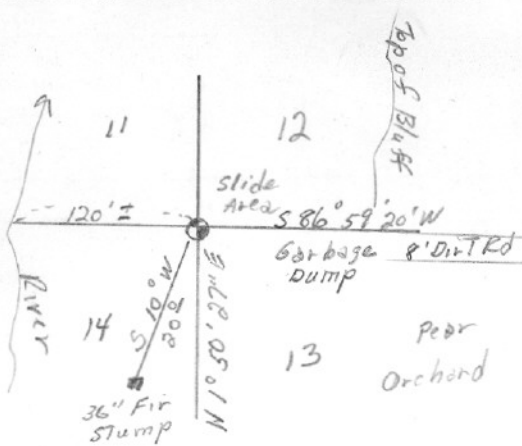 Top of Bluff
11
12
Slide
Area
120' ±
S 86° 59' 20" W
Garbage
Dump
8' Dirt Rd
River
S 10° W
14
13
Pear
Orchard
36" Fir
Stump